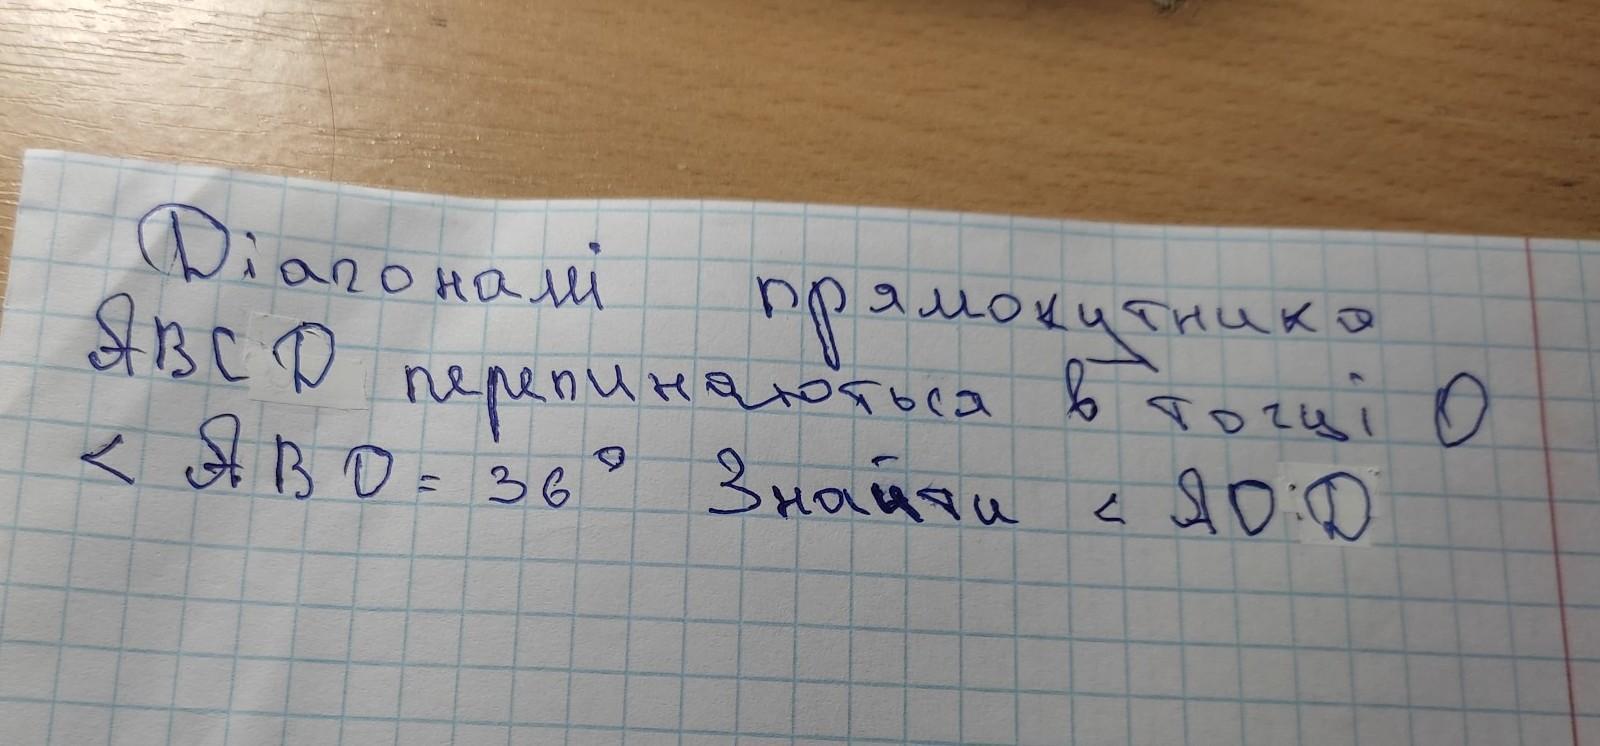 Діагоналі прямокутника
ABCD перепинаються в точці O
< ABO = 36° Знайти < AOD